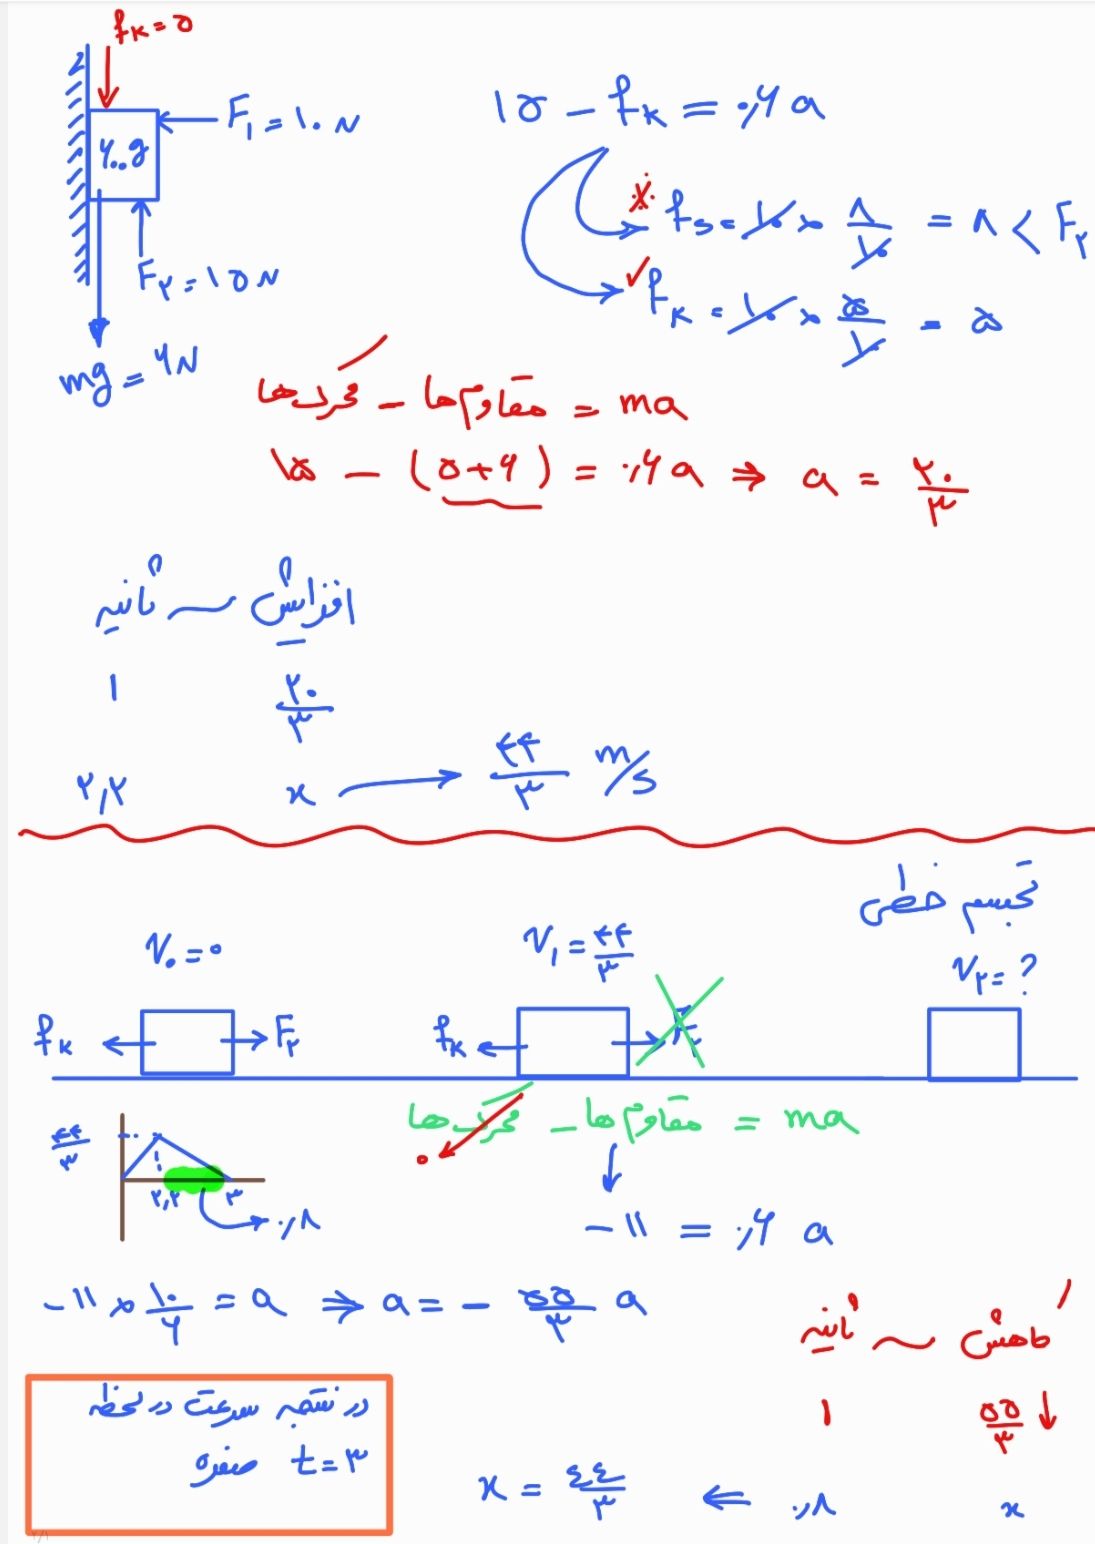 fk = ۵
F₁ = ۱۰ N
۶۰۰g
F۲ = ۱۵ N
mg = ۶N
۱۵ - fk = ۰,۶ a
fs = ۱۰ × ۸/۱۰ = ۸ < F۲
fk = ۱۰ × ۵/۱۰ = ۵
محرک‌ها - مقاوم‌ها = ma
۱۵ - (۵+۶) = ۰,۶ a ⇒ a = ۲۰/۳
افزایش ~ ثانیه
۲۰/۳ ۱
x ۲,۲
۴۴/۳ m/s
تجسم خطی
V₀ = ۰ V₁ = ۴۴/۳ V۲ = ?
fk F۲ fk F۲
محرک‌ها - مقاوم‌ها = ma
۰
۴۴/۳
۲,۲ ۳
۰,۸
-۱۱ = ۰,۶ a
-۱۱ × ۱۰/۶ = a ⇒ a = - ۵۵/۳ a
کاهش ~ ثانیه
۵۵/۳ ۱
x ۰,۸
x = ٤٤/۳
در نتیجه سرعت در لحظه
t = ۳ صفره